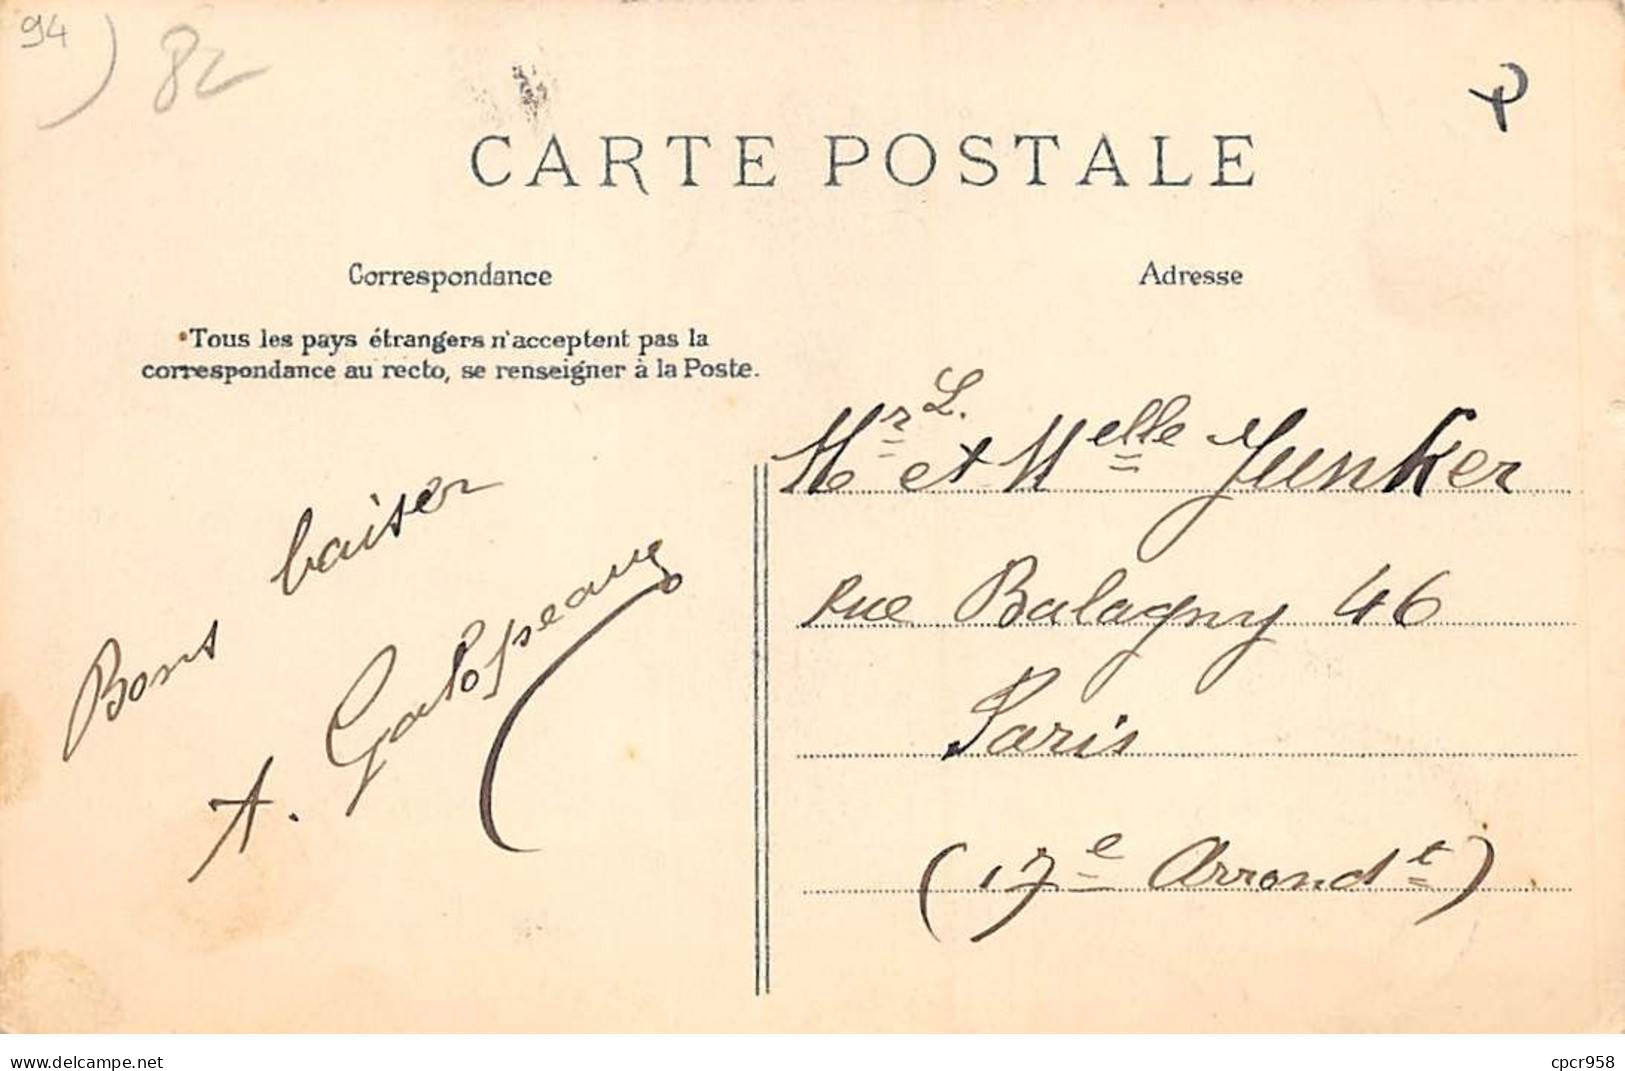 94
82
CARTE POSTALE
Correspondance
Tous les pays étrangers n'acceptent pas la
correspondance au recto, se renseigner à la Poste.
Bons baiser
A. Galopeau
Adresse
Mr L. et Melle Junker
Rue Balagny 46
Paris
(17e Arrondt)
www.delcampe.net
cpcr958